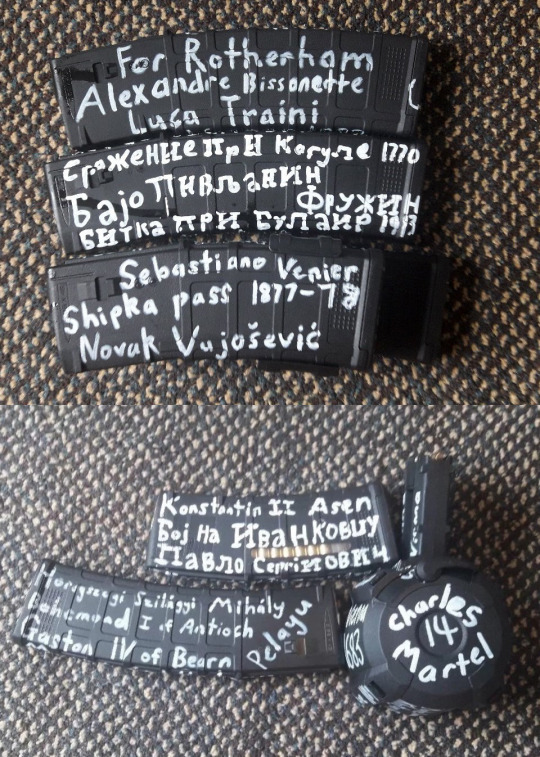 For Rotherham
Alexandre Bissonette
Luca Traini
Сражение при Кагуле 1770
Бајо Пивљанин
Фружин
Битка при Булаир 1913
Sebastiano Venier
Shipka pass 1877-78
Novak Vujošević
Konstantin II Asen
Бој на Иванковцу
Павло Сергійович
Szilágyi Mihály
Bohemond I of Antioch
Gaston IV of Bearn
Pelayu
Vienna
1683
Charles
14
Martel